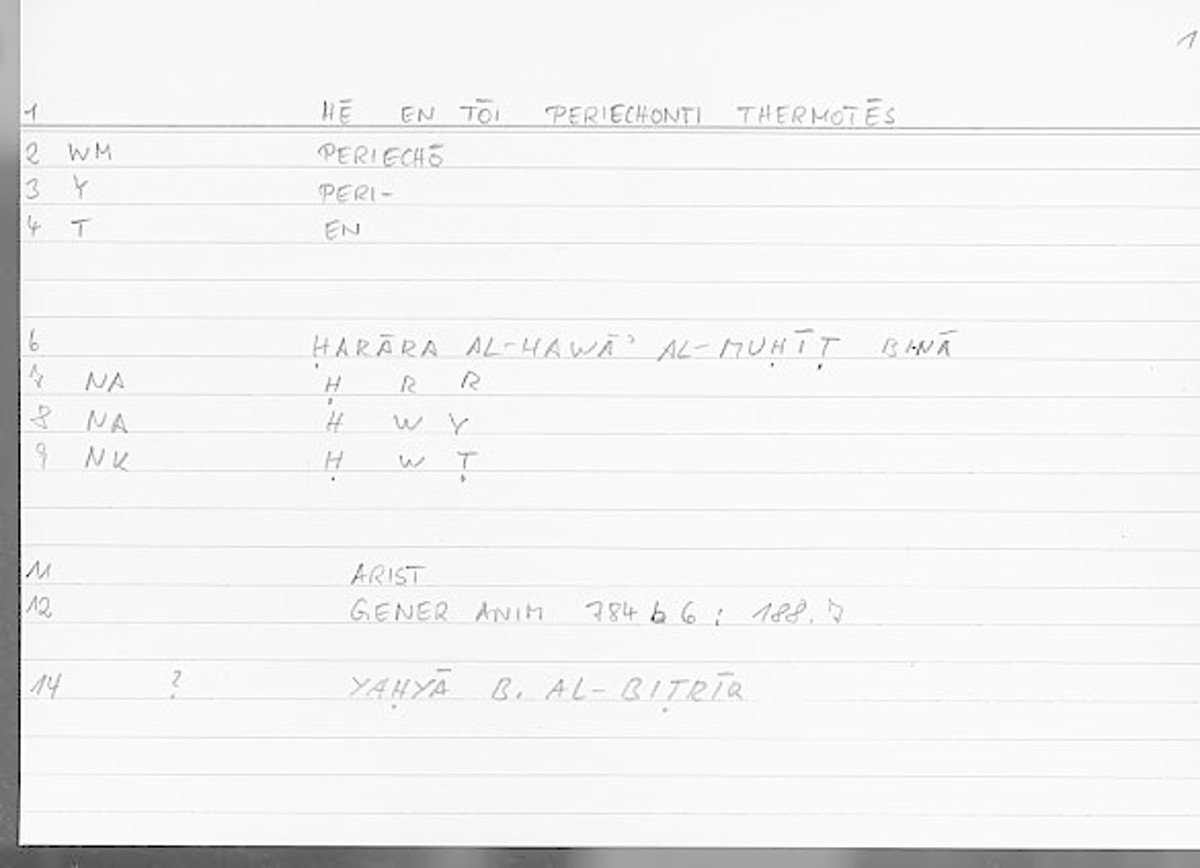 1
1 HĒ EN TŌI PERIECHONTI THERMOTĒS
2 WM PERIECHŌ
3 Y PERI-
4 T EN
6 ḤARĀRA AL-HAWĀʾ AL-MUḤĪṬ BINĀ
7 NA Ḥ R R
8 NA H W Y
9 NK Ḥ W Ṭ
11 ARIST
12 GENER ANIM 784 b 6 ; 188.7
14 ? YAḤYĀ B. AL-BIṬRĪQ